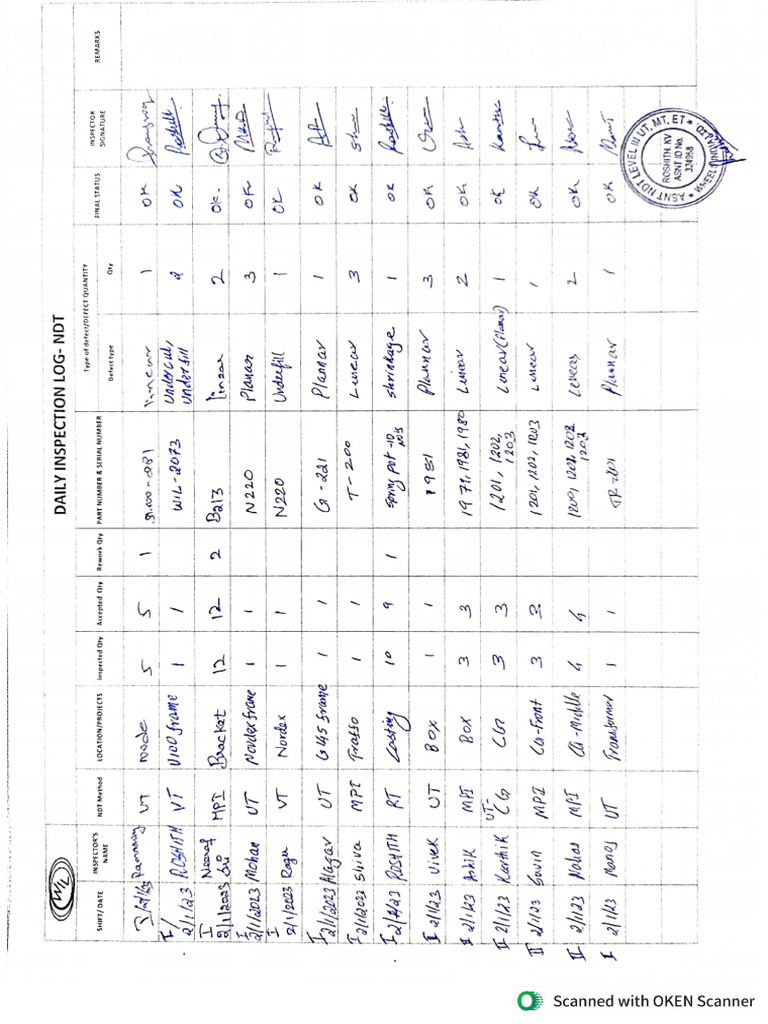 DAILY INSPECTION LOG- NDT
WL
SHIFT/DATE INSPECTOR'S NAME NDT Method LOCATION/PROJECTS Inspected Qty Accepted Qty Rework Qty PART NUMBER & SERIAL NUMBER Type of defect/DEFECT QUANTITY Defect type Qty FINAL STATUS INSPECTOR SIGNATURE REMARKS
5 5 1 1 OK
I/ 2/1/23 ROSHITH VT V100 frame 1 1 WIL-2073 Undercut, underfill 2 OK
I 2/1/2023 Neeraj MPI Bracket 12 12 2 B213 linear 2 OK
I 2/1/2023 Mohan UT Nordex frame 1 1 N220 Planar 3 OK
I 2/1/2023 Ragu VT Nordex 1 1 N220 Underfill 1 OK
I 2/1/2023 Alagar UT G145 frame 1 1 G-221 Plannar 1 OK
I 2/1/2023 Shiva MPI Traffo 1 1 T-200 Linear 3 OK
I 2/1/23 ROSHITH RT Casting 10 9 1 spring pot -10 nos shrinkage 1 OK
II 2/1/23 Vivek UT BOX 1 1 1981 Plannar 3 OK
II 2/1/23 Ashik MPI BOX 3 3 1979, 1981, 1980 Linear 2 OK
II 2/1/23 Karthik UT- CG 3 3 1201, 1202, 1203 Linear (Planar) 1 OK
II 2/1/23 MPI CG-Front 3 3 1201, 1202, 1203 Linear 1 OK
II 2/1/23 MPI CG-Middle 4 4 Linear 2 OK
II 2/1/23 Manoj UT Transformer 1 1 Plannar 1 OK
ASNT NDT LEVEL III UT, MT, ET
ROSHITH. KV
ASNT ID No.
324958
Scanned with OKEN Scanner